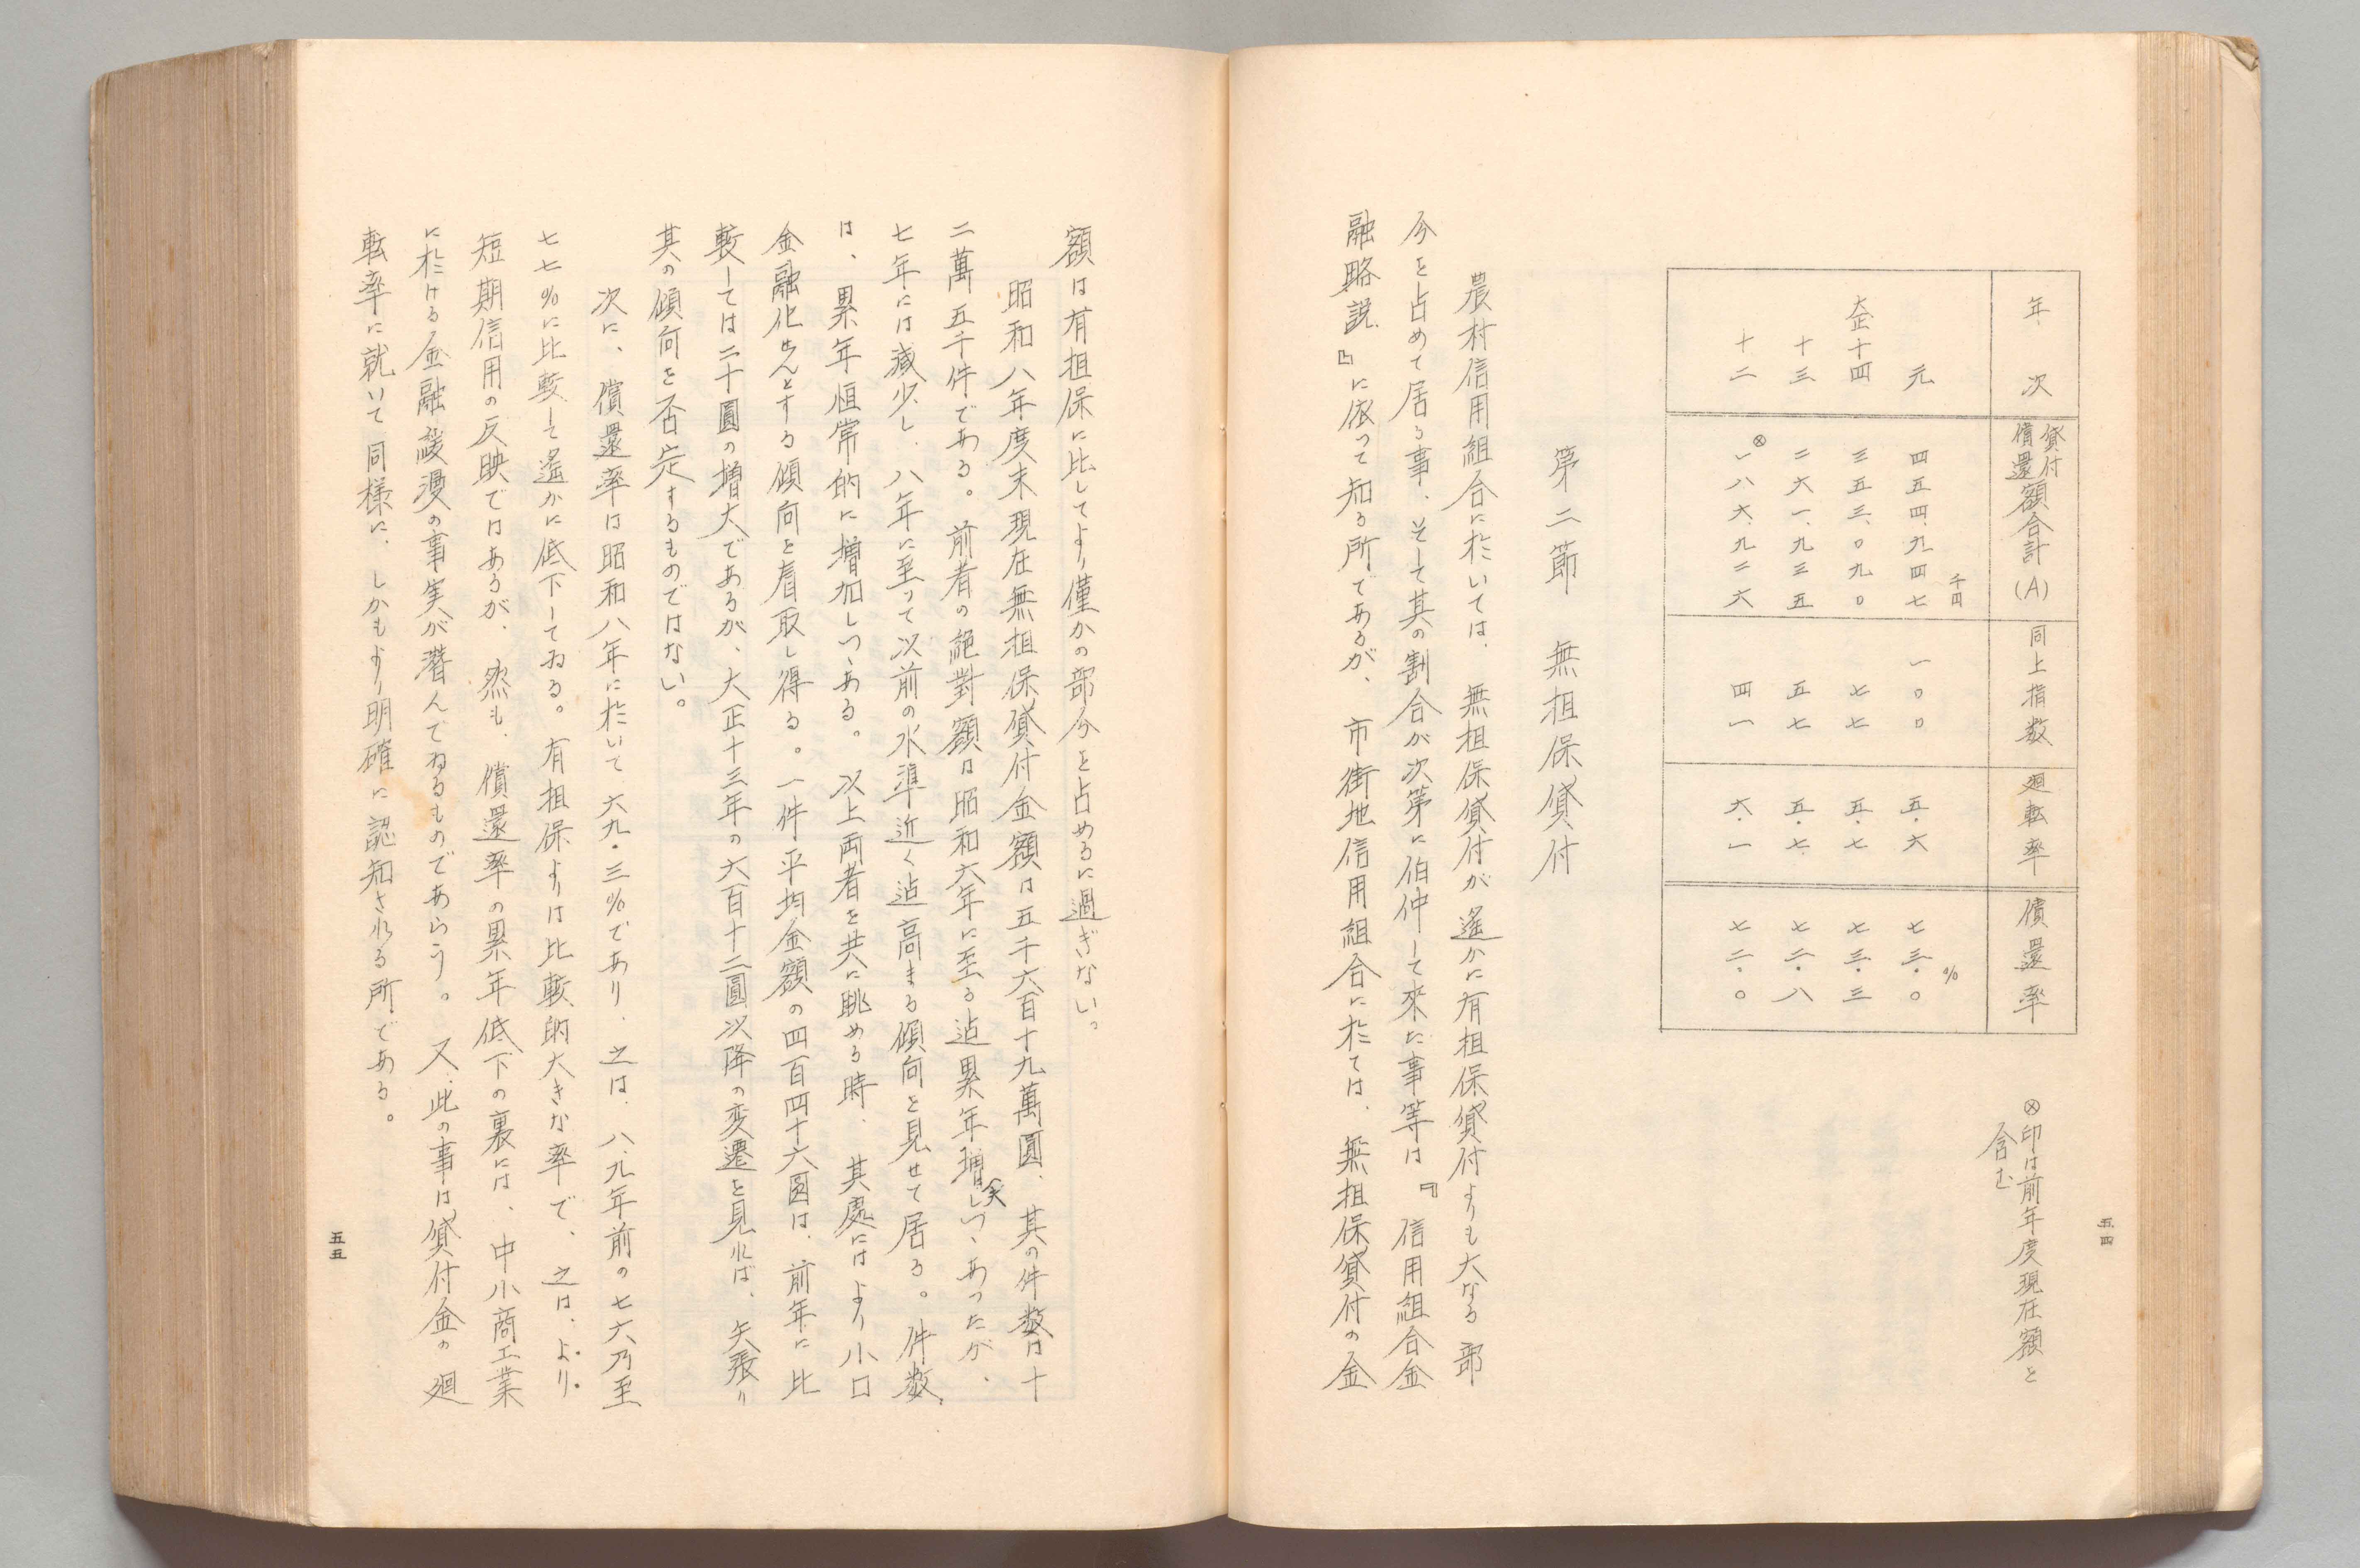 五四
年次
貸付償還額合計(A)
同上指数
廻転率
償還率
元
四五四、九四七
千円
一〇〇
五・六
七三・〇
%
大正十四
三五三、〇九〇
七七
五・七
七三・三
十三
二六一、九三五
五七
五・七
七二・八
十二
⊗一八六、九二六
四一
六・一
七二・〇
⊗印は前年度現在額を
含む
第二節 無担保貸付
農村信用組合に於いては、無担保貸付が遙かに有担保貸付よりも大なる部
分を占めて居る事、そして其の割合が次第に伯仲して來た事等は『信用組合金
融略説』に依つて知る所であるが、市街地信用組合に於ては、無担保貸付の金
額は有担保に比してより僅かの部分を占めるに過ぎない。
昭和八年度末現在無担保貸付金額は五千六百十九萬圓、其の件数は十
二萬五千件である。前者の絶對額は昭和六年に至る迠累年増大しつゝあつたが、
七年には減少し、八年に至つて以前の水準近く迠高まる傾向を見せて居る。件数
は、累年恒常的に増加しつゝある。以上両者を共に眺める時、其處にはより小口
金融化せんとする傾向を看取し得る。一件平均金額の四百四十六圓は、前年に比
較しては二十圓の増大であるが、大正十三年の六百十二圓以降の変遷を見れば、矢張り
其の傾向を否定するものではない。
次に、償還率は昭和八年に於いて六九・三%であり、之は、八、九年前の七六乃至
七七%に比較して遙かに低下してゐる。有担保よりは比較的大きな率で、之は、より
短期信用の反映ではあるが、然も、償還率の累年低下の裏には、中小商工業
に於ける金融緩漫の事実が潜んでゐるものであらう。又、此の事は貸付金の廻
転率に就いて同様に、しかもより明確に認知される所である。
五五